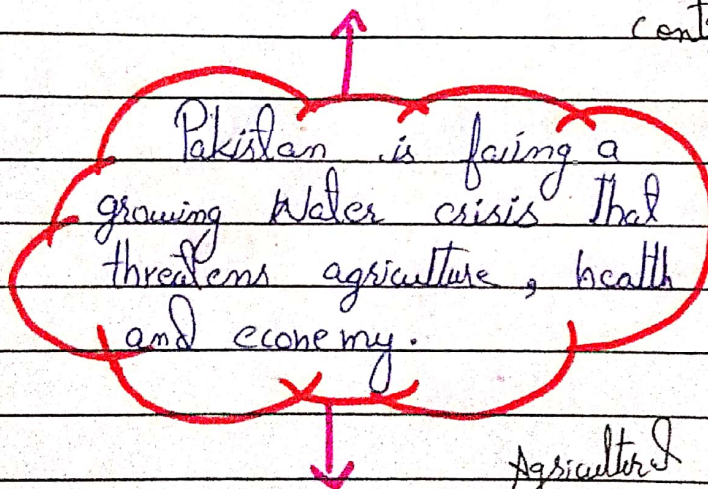 cont
Pakistan is facing a
growing Water crisis that
threatens agriculture, health
and economy.
Agricultural